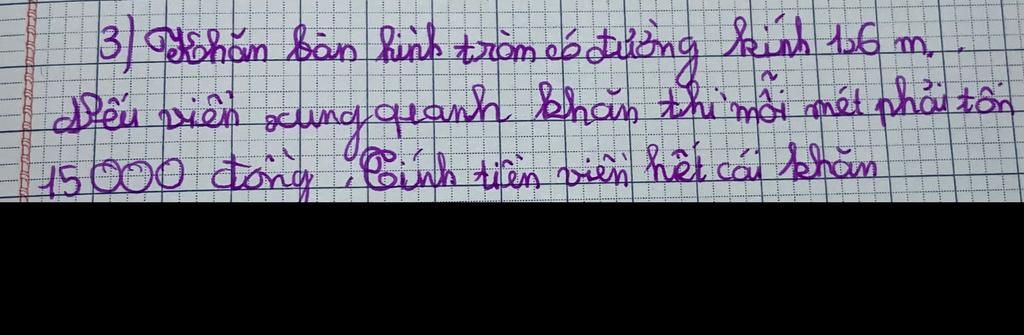 3) Khăn bàn hình tròn có đường kính 1,6 m.
Nếu viền xung quanh khăn thì mỗi mét phải tốn
15 000 đồng. Tính tiền viền hết cái khăn